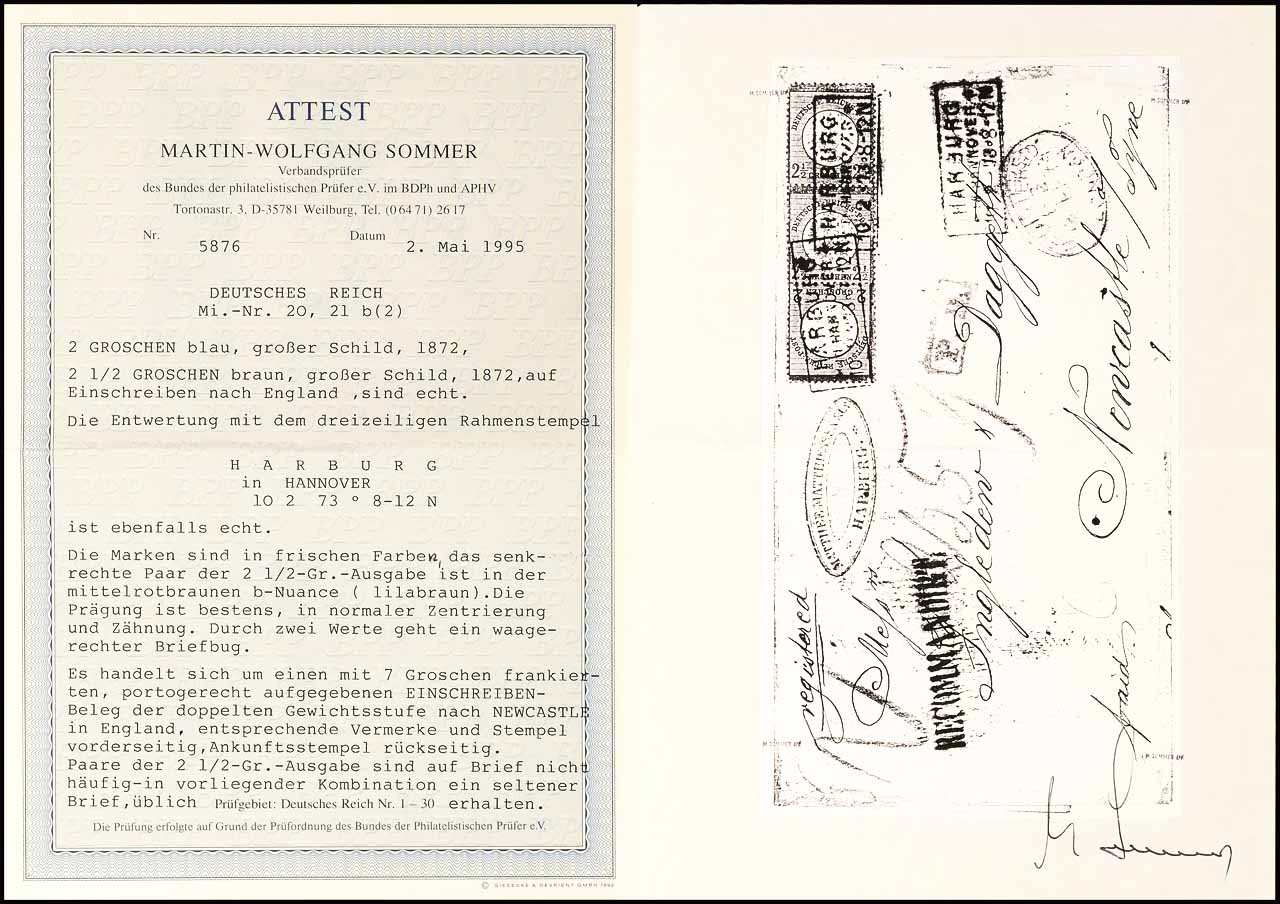 ATTEST
MARTIN-WOLFGANG SOMMER
Verbandsprüfer
des Bundes der philatelistischen Prüfer e.V. im BDPh und APHV
Tortonastr. 3, D-35781 Weilburg, Tel. (0 64 71) 26 17
Nr. 5876 Datum 2. Mai 1995
DEUTSCHES REICH
Mi.-Nr. 20, 21 b(2)
2 GROSCHEN blau, großer Schild, 1872,
2 1/2 GROSCHEN braun, großer Schild, 1872,auf
Einschreiben nach England ,sind echt.
Die Entwertung mit dem dreizeiligen Rahmenstempel
H A R B U R G
in HANNOVER
10 2 73 ° 8-12 N
ist ebenfalls echt.
Die Marken sind in frischen Farben, das senk-
rechte Paar der 2 1/2-Gr.-Ausgabe ist in der
mittelrotbraunen b-Nuance ( lilabraun).Die
Prägung ist bestens, in normaler Zentrierung
und Zähnung. Durch zwei Werte geht ein waage-
rechter Briefbug.
Es handelt sich um einen mit 7 Groschen frankier-
ten, portogerecht aufgegebenen EINSCHREIBEN-
Beleg der doppelten Gewichtsstufe nach NEWCASTLE
in England, entsprechende Vermerke und Stempel
vorderseitig,Ankunftsstempel rückseitig.
Paare der 2 1/2-Gr.-Ausgabe sind auf Brief nicht
häufig-in vorliegender Kombination ein seltener
Brief,üblich Prüfgebiet: Deutsches Reich Nr. 1 – 30 erhalten.
Die Prüfung erfolgte auf Grund der Prüfordnung des Bundes der Philatelistischen Prüfer e.V.
© GIESECKE & DEVRIENT GMBH 1992
HARBURG
HANNOVER
HARBURG
registered
Messrs
RECOMMANDIRT
Ingledew & Daggett
Newcastle o/Tyne
HARBURG
paid